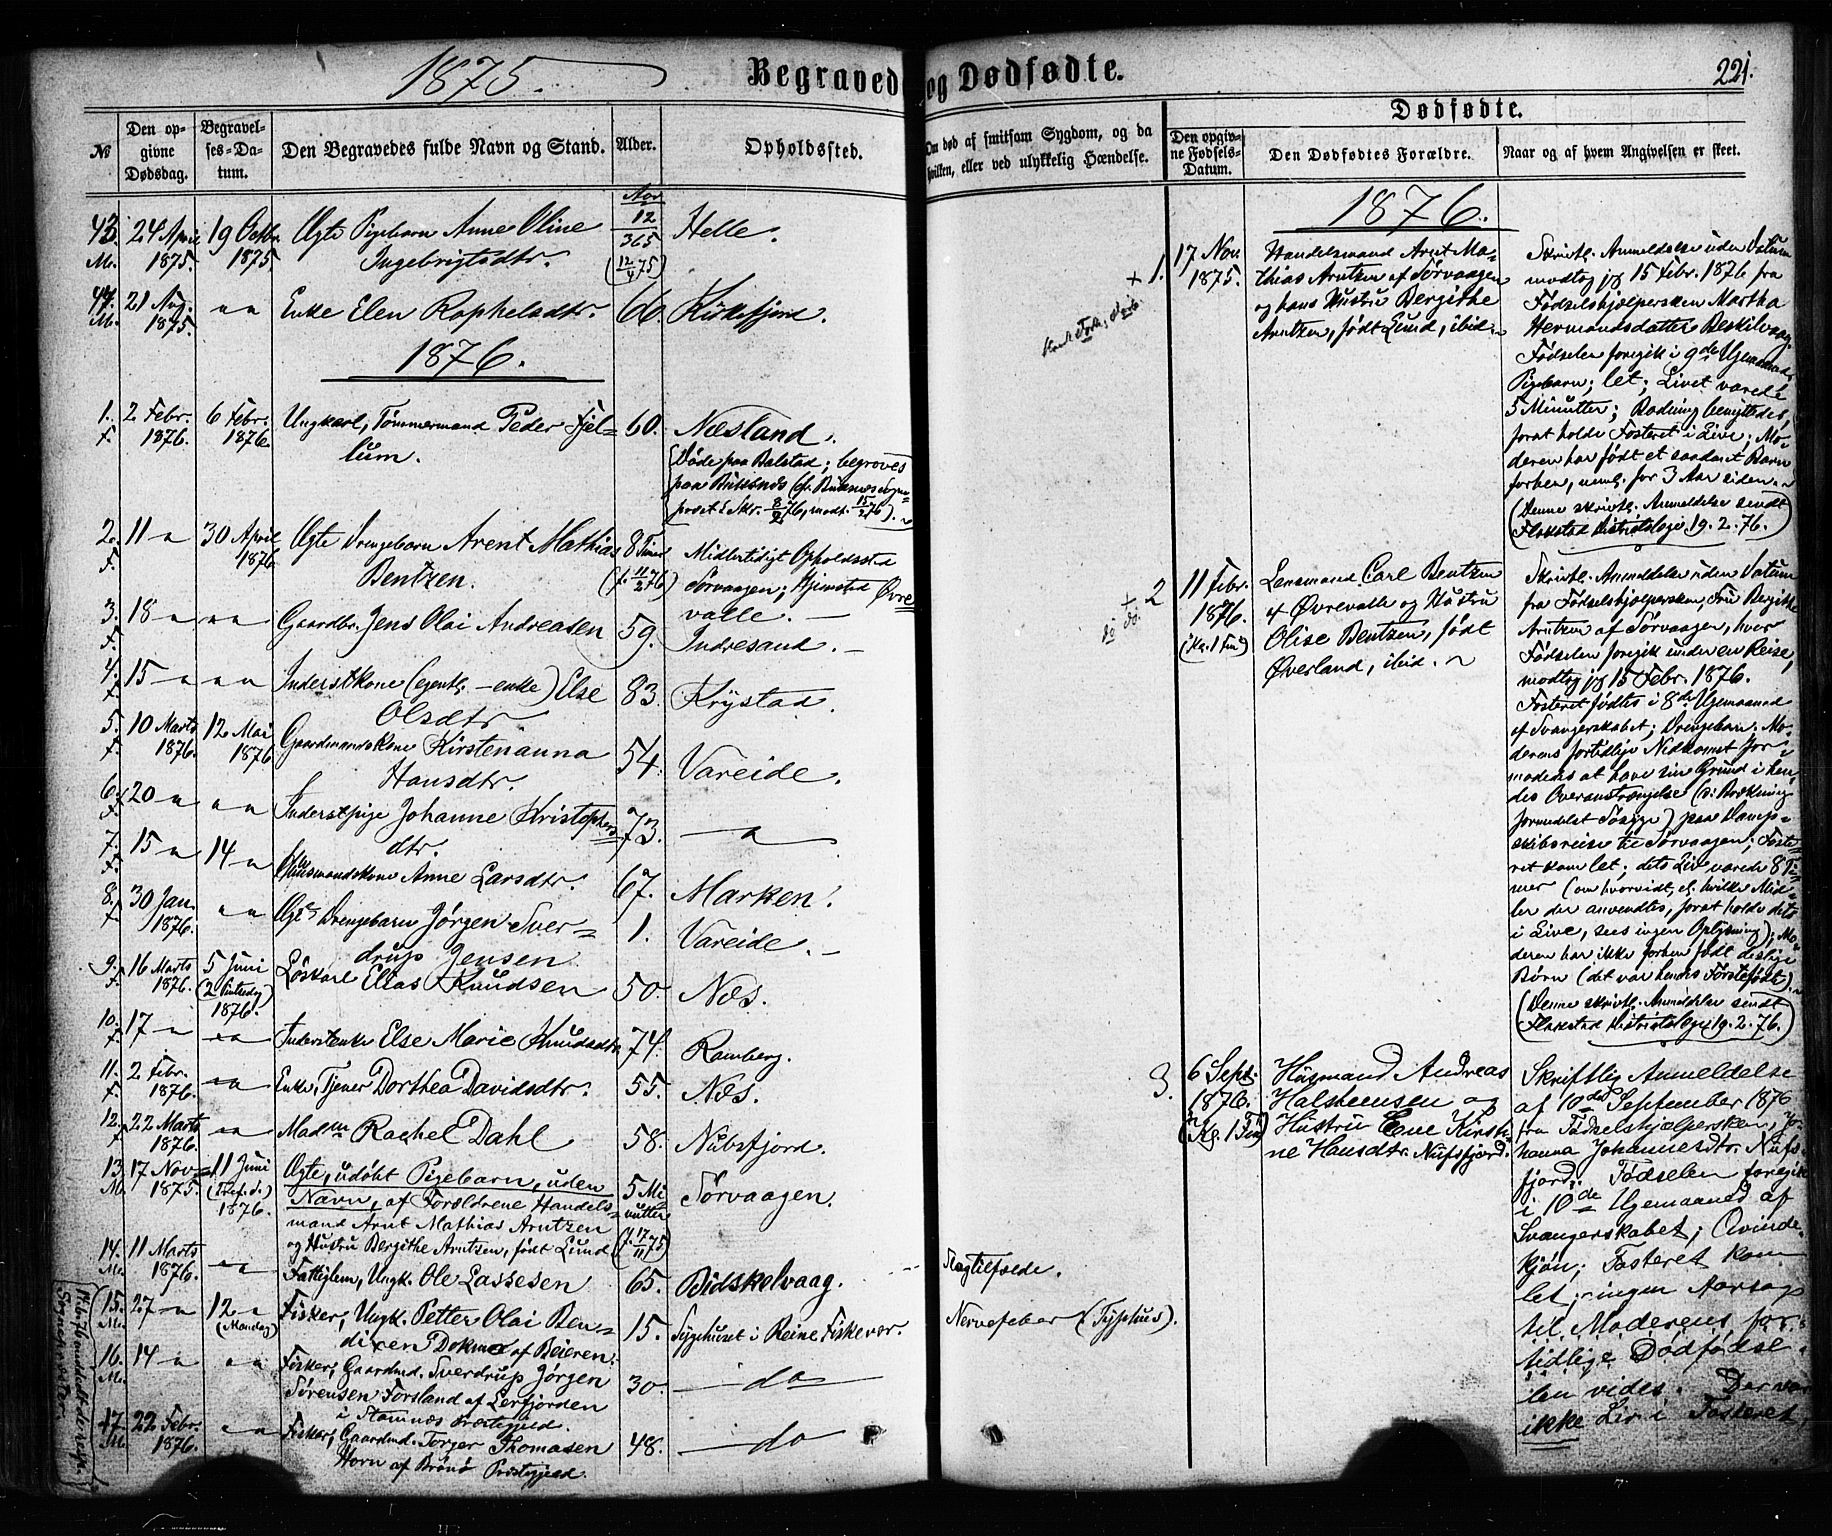 1875.
Begravede og Dødfødte.
221.
№
Den opgivne Dødsdag.
Begravelses-Datum.
Den Begravedes fulde Navn og Stand.
Alder.
Opholdssted.
Om død af smitsom Sygdom, og da hvilken, eller ved ulykkelig Hændelse.
Dødfødte.
Den opgivne Fødsels-Datum.
Den Dødfødtes Forældre.
Naar og af hvem Angivelsen er skeet.
43. 24 April 19 Octbr. Ægte Pigebarn Anne Oline Aar 12/365 Helle.
M. 1875. 1875 Ingebrigtsdtr. (12/4 75)
44. 21 Aug. " " Enke Elen Raphelsdtr. 66. Kirkefjord.
M. 1875.
1876.
1. 2 Febr. 6 Febr. Ungkarl, Tømmermand Peder Fjel- 60. Næsland.
F. 1876. 1876. lum.
(Døde paa Balstad; begroves
paa Buksnæs (cfr. Buksnæs Sogne-
præst's Skr. 8/2 76, modt. 15/2 76).
2. 11 " 30 April Ægte Drengebarn Arent Mathias 8 Timer Midlertidigt Opholdssted
F. 1876. Bentzen. (f. 11/2 76) Sørvaagen; Hjemsted Øvre
3. 18 " " " Gaardbr. Jens Olai Andreasen 59. valle. —
F. Indresand. —
4. 15 " " " Inderstkone (egentl. — enke) Else 83. Krystad.
F. Olsdtr
5. 10 Marts 12 Mai Gaardmandskone Kirstenanna 54. Vareide.
F. 1876. 1876 Hansdtr.
6. 20 " " " Inderstpige Johanne Kristophers 73. — " —
F. dtr.
7. 15 " 14 " Huusmandskone Anne Larsdtr. 67. Marken.
F.
8. 30 Jan. " " Ægte Drengebarn Jørgen Sver- 1. Vareide. —
F. 1876. drup Jensen
9. 16 Marts 5 Juni Løskarl Elias Knudsen 50. Næs.
F. 1876. (2 Pintsedag) 1876.
10. 17 " " " Inderstenke Else Marie Knudsdtr 74. Ramberg.
F.
11. 2 Febr. " " Enke, Tjener Dorthea Davidsdtr. 55. Næs.
F. 1876.
12. 22 Marts " " Madm Rachel Dahl 58. Nubsfjord.
F. 1876.
13. 17 Nov. 11 Juni Ægte, udøbt Pigebarn, uden 5 Mi- Sørvaagen.
M. 1875. (Tref. S.) Navn, af Forældrene Handels- nutter
1876. mand Arnt Mathias Arntzen (f. 17/11 75)
og Hustru Bergithe Arntzen, født Lund
14. 11 Marts " " Fattiglem, Ungk. Ole Lassesen 65. Bidskelvaag. Slagtilfælde.
M. 1876.
15. 27 " 12 " Fisker, Ungk. Petter Olai Ben- 15. Sygehuset i Reine Fiskevær. Nervefeber (Typhus).
M. (Mandag) dixen Dokmo af Beieren.
16. 14 " " " Fisker, Gaardmd. Sverdrup Jørgen 30. — do —
M. Sørensen Forsland af Leirfjorden
i Stamnæs Præstegjeld.
17. 22 Febr. " " Fisker, Gaardmd. Torger Thomasen 48. — do
M. 1876. Horn af Brønø Præstegjeld.
1876.
+ 1. 17 Nov. 1875.
Handelsmand Arnt Ma-
thias Arntzen af Sørvaagen
og hans Hustru Bergithe
Arntzen, født Lund, ibid.
Skriftl. Anmeldelse uden Datum
modtog jeg 15 Febr. 1876 fra
Fødselshjælpersken Martha
Hermansdatter Beskilvaag.
Fødselen foregik i 9de Ugemaaned;
Pigebarn; let; Livet varede
5 Minutter; Badning benyttedes,
forat holde Fosteret i Live; Mo-
deren har født et saadant Barn
forhen, neml. for 3 Aar siden.
(Denne skriftl. Anmeldelse sendt
Flakstad Distriktslæge 19. 2. 76.)
+ 2 do do.
11 Febr. 1876. (Kl. 1 Fm)
Lensmand Carl Bentzen
af Øvrevalle og Hustru
Olise Bentzen, født
Øverland, ibid.
Skriftl. Anmeldelse uden Datum
fra Fødselshjælpersken, Fru Bergithe
Arntzen af Sørvaagen, hvor
Fødselen foregik under en Reise,
modtog jeg 15 Febr. 1876.
Fosteret fødtes i 8de Ugemaaned
af Svangerskabet; Drengebarn. Mo-
derens fortidlige Nedkomst for-
modedes at have sin Grund i hen-
des Overanstrængelse (ɔ: Brækning
formedelst Søsyge) paa Damp-
skibsreise til Sørvaagen; Foste-
ret kom let; dets Liv varede 8 Ti-
mer (om hvorvidt, el. hvilke Mid-
ler der anvendtes, forat holde det
i Live, sees ingen Oplysning); Mo-
deren har ikke forhen født deslige
Børn (det var hendes Førstefødte).
(Denne skriftl. Anmeldelse sendt
Flakstad Distriktslæge 19. 2. 76.)
3. 6 Sept. 1876. (Kl. 1 Fm)
Husmand Andreas
Halsteensen og
Hustru Ene Kirsti-
ne Hansdtr. Nufsfjord.
Skriftlig Anmeldelse
af 10de September 1876
fra Fødselshjælpersken, Jo-
hanna Johannesdtr. Nufs-
fjord. Fødselen foregik
i 10de Ugemaaned af
Svangerskabet; Qvinde-
kjøn; Fosteret kom
let; ingen Aarsag
til Moderens for-
tidlige Dødfødsel
ilen vides. Der var
ikke Liv i Fosteret.